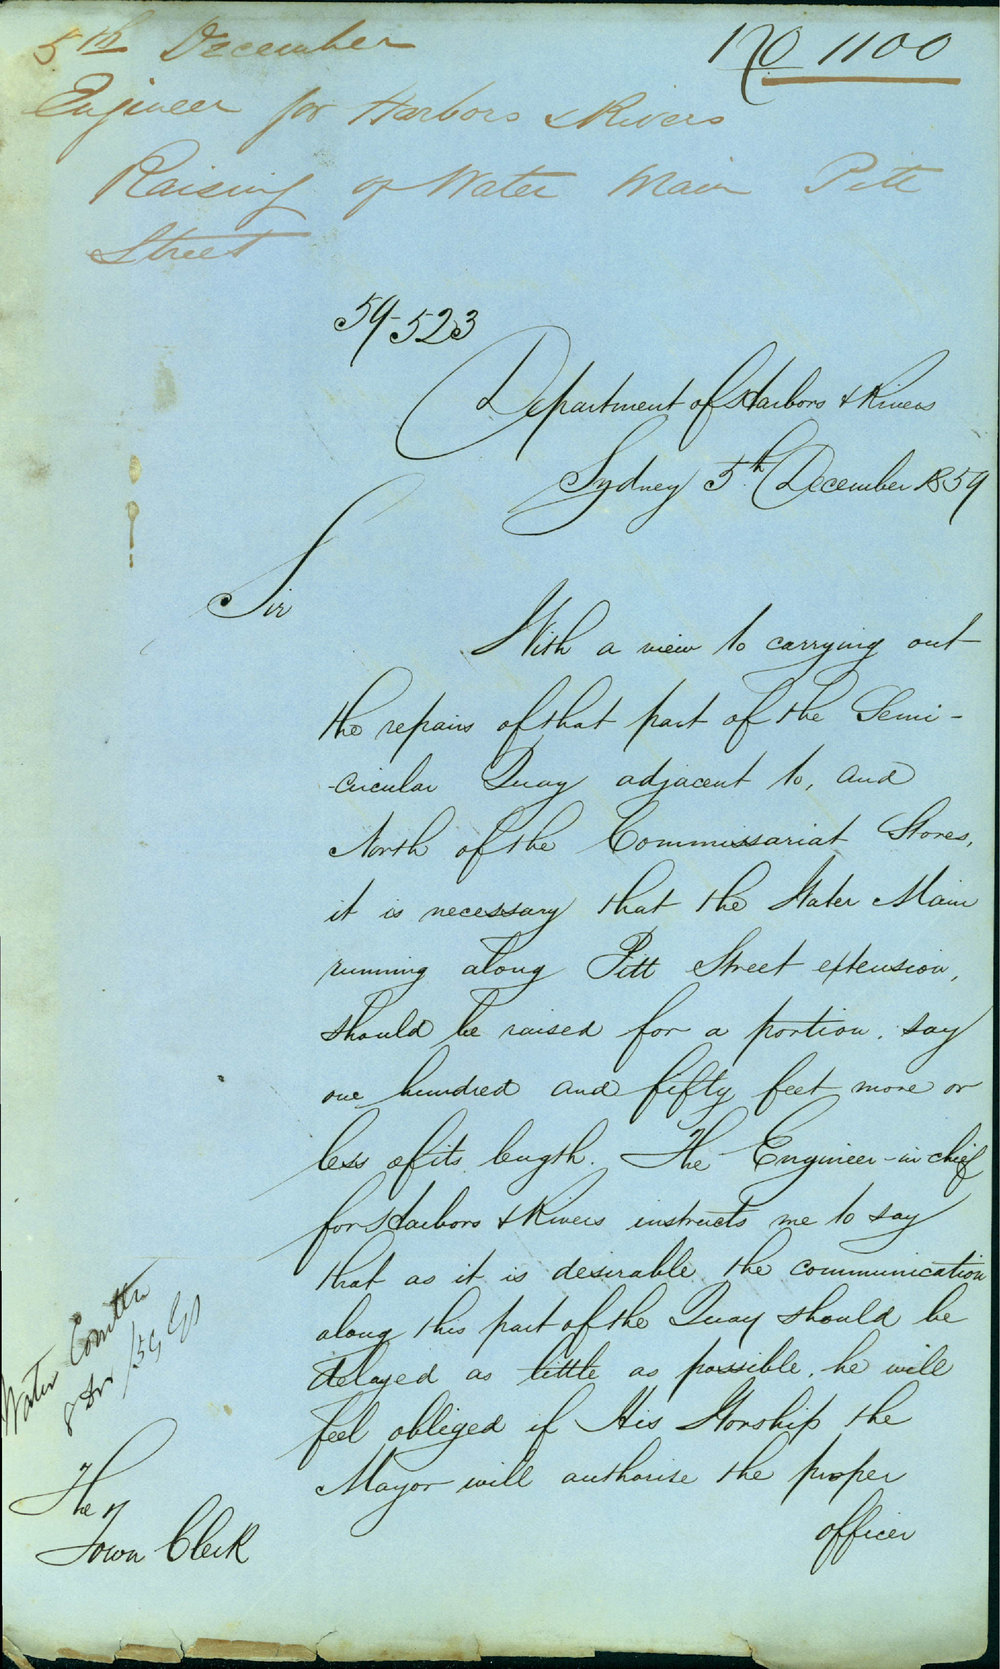 5th December
No 1100
Engineer for Harbors & Rivers
Raising of Water Main Pitt
Street
59-523
Department of Harbors & Rivers
Sydney 5th December 1859
Sir
With a view to carrying out
the repairs of that part of the Semi-
-circular Quay adjacent to, and
North of the Commissariat Stores,
it is necessary that the Water Main
running along Pitt Street extension,
should be raised for a portion, say
one hundred and fifty feet more or
less of its length. The Engineer-in-chief
for Harbors & Rivers instructs me to say
that as it is desirable the communication
along this part of the Quay should be
delayed as little as possible, he will
feel obliged if His Worship the
Mayor will authorise the proper
officer
Water Comttee
8 Dec /59
The
Town Clerk